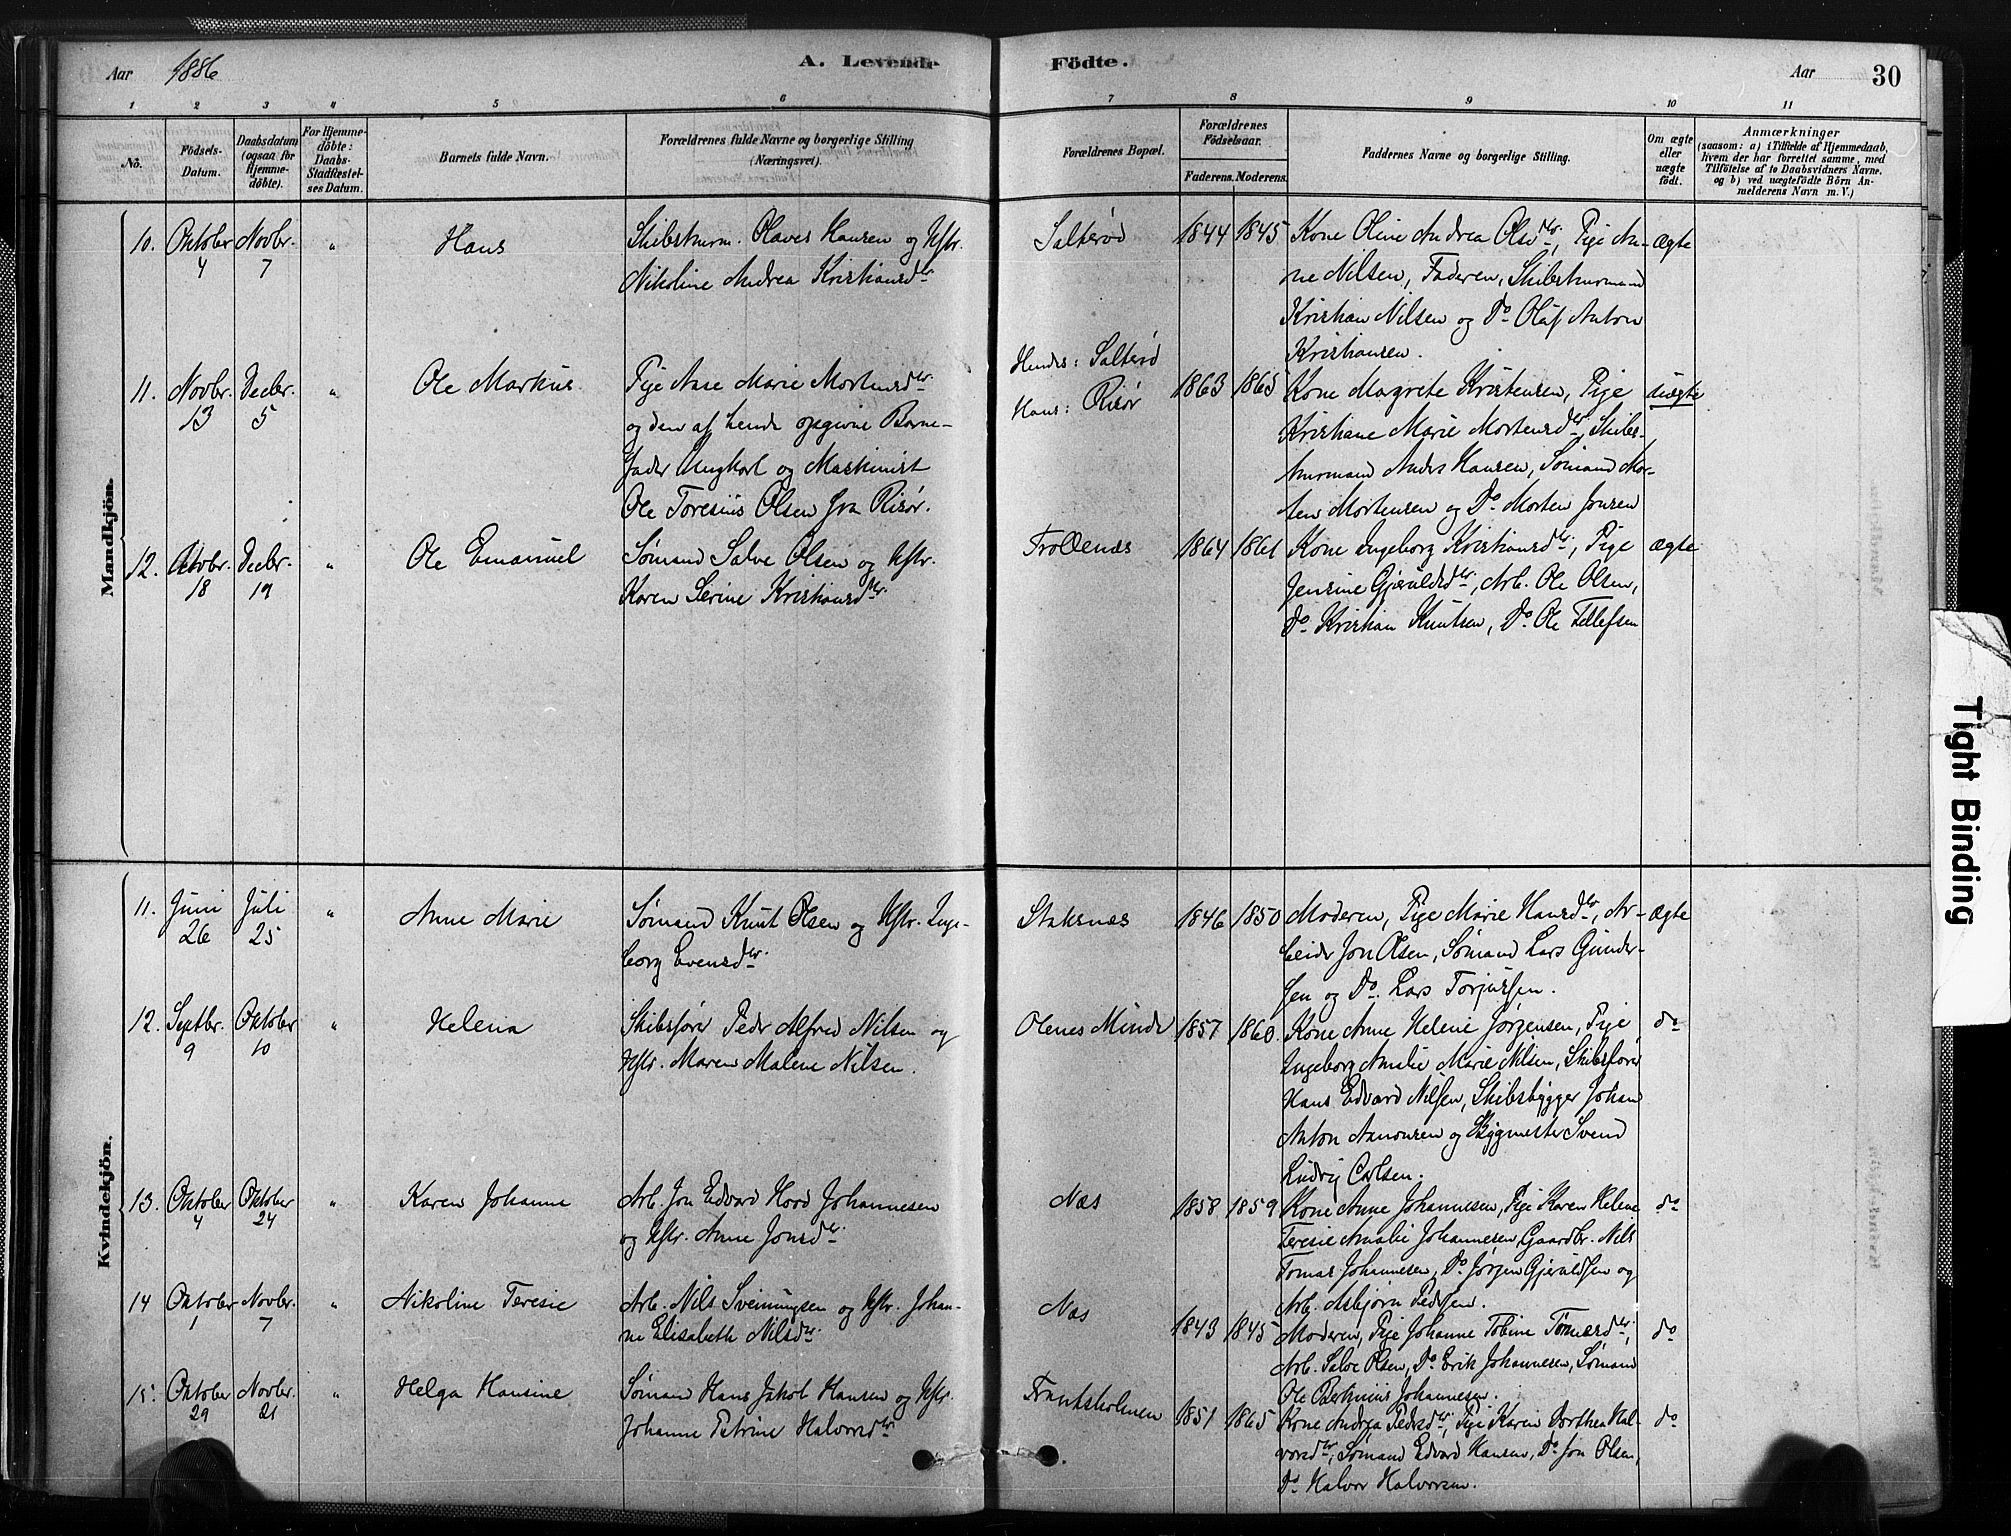 Aar 1886 A. Levende Födte. Aar 30
1 2 3 4 5 6 7 8 9 10 11
No. Födsels-Datum. Daabsdatum (ogsaa for Hjemme-döbte). For Hjemme-döbte: Daabs-Stadfæstel-ses Datum. Barnets fulde Navn. Forældrenes fulde Navne og borgerlige Stilling (Næringsvei). Forældrenes Bopæl. Forældrenes Födselsaar. Faderens. Moderens. Faddernes Navne og borgerlige Stilling. Om ægte eller uægte födt. Anmærkninger (saasom: a) i Tilfælde af Hjemmedaab, hvem der har forrettet samme, med Tilföielse af to Daabsvidners Navne. og b) ved uægtefödte Börn An-melderens Navn m. V.)
Mandkjön.
10. Oktober 4 Novbr. 7 " Hans Skibstmrm. Olaves Hansen og Hstr. Salterød 1844 1845 Kone Oline Andrea Olsdtr., Pige An- ægte
Nikoline Andrea Kristiansdtr. ne Nilsen, Faderen, Skibstmrmand
Kristian Nilsen og Do Olaf Anton
Kristiansen.
11. Novbr. 13 Decbr. 5 " Ole Markus. Pige Anne Marie Mortensdtr. Hendes: Salterød 1863 1865 Kone Margrete Kristensen, Pige uægte
og den af hende opgivne Barne- Hans: Risør Kristiane Marie Mortensdtr., Skibs-
fader Ungkarl og Maskinist tmrmand Anders Hansen, Sømand Mor-
Ole Toresius Olsen fra Risør. ten Mortensen og Do Morten Jensen
12. Novbr. 18 Decbr. 19 " Ole Emanuel Sømand Salve Olsen og Hstr. Trollenæs 1864 1861 Kone Ingeborg Kristiansdtr., Pige ægte
Karen Serine Kristiansdtr. Jensine Gjeruldsdtr., Arb. Ole Olsen,
Do Kristian Knutsen, Do Ole Tellefsen
Kvindekjön.
11. Juni 26 Juli 25 " Anne Marie Sømand Knut Olsen og Hstr. Inge- Staksnæs 1846 1850 Moderen, Pige Marie Hansdtr., Ar- ægte
borg Evensdtr. beider Jon Olsen, Sømand Lars Gunder-
sen og Do. Lars Torjussen.
12. Septbr. 9 Oktober 10 " Helena Skibsfører Peder Alfred Nilsen og Olenes Minde 1857 1860. Kone Anne Helene Jørgensen, Pige do
Hstr. Maren Malene Nilsen. Ingeborg Amalie Marie Nilsen, Skibsfører
Hans Edvard Nilsen, Skibsbygger Johan
Anton Aanonsen og Bygmester Svend
Ludvig Carlsen.
13. Oktober 4 Oktober 24 " Karen Johanne Arb. Jon Edvard Hovd Johannesen Næs 1858 1859 Kone Anne Johannesen, Pige Karen Helene do
og Hstr. Anne Jonsdtr. Teresie Amalie Johannesen, Gaardbr. Nils
Tomas Johannesen, Do Jørgen Gjeruldsen og
Arb. Asbjørn Pedersen.
14 Oktober 1 Novbr. 7 " Nikoline Teresie Arb. Nils Sveinungsen og Hstr. Johan- Næs 1843 1845 Moderen, Pige Johanne Tobine Tomasdtr., do
ne Elisabeth Nilsdtr. Arb. Salve Olsen, Do Erik Johannesen, Sømand
Ole Bertinius Johannesen.
15. Oktober 29 Novbr. 21 " Helga Hansine Sømand Hans Jakob Hansen og Hstr. Frantsholmen 1851 1865 Kone Andrea Pedersdtr., Pige Karen Dorthea Hal- do
Johanne Petrine Halvorsdtr. vorsdtr., Sømand Edvard Hansen, Do Jon Olsen,
Do Halvor Halvorsen.
Tight Binding